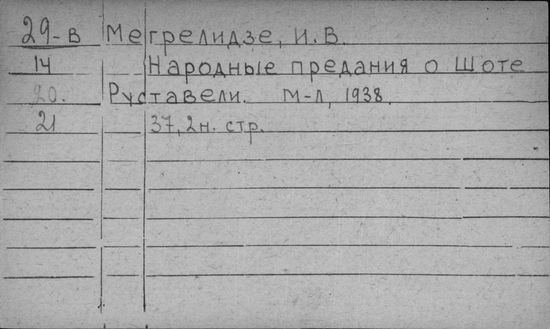 29-в Мегрелидзе, И.В.
14 Народные предания о Шоте
20. Руставели. М-Л, 1938.
21 37, 2н. стр.